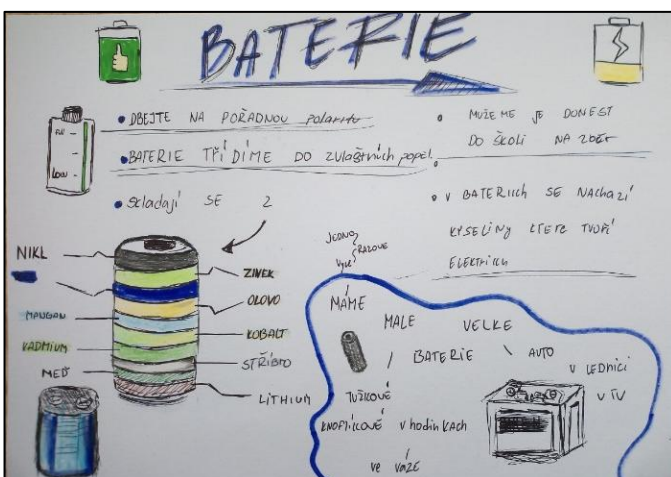 BATERIE
• DBEJTE NA POŘADNOU polaritu
• BATERIE TŘÍDÍME DO ZVLAŠTNÍCH popel.
• skladají SE Z
• MUŽEME JE DONEST
DO ŠKOLI NA ZBĚR
• V BATERIICH SE NACHAZÍ
KYSELINY KTERE TVOŘÍ
FULL
LOW
NIKL
MANGAN
KADMIUM
MEĎ
ZINEK
OLOVO
KOBALT
STŘÍBRO
LITHIUM
JEDNO
VÍCE
RAZOVE
MÁME
MALE VELKE
BATERIE
AUTO
V LEDNICI
V TV
TUŽKOVÉ
KNOFLÍKOVÉ v hodinkach
ve váze